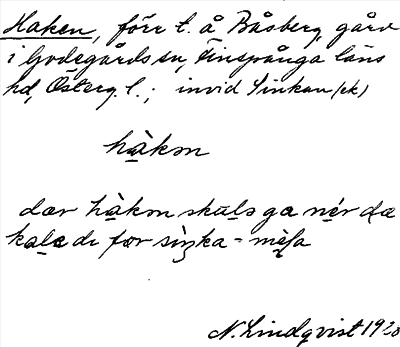 Haken, förr t. å Båsberg, gård
i Godegårds sn, Finspånga läns
hd, Österg. l.; invid Sinkan (ek)
hàkon
dær hàkon skuls ga nér dæ
kalade fœr siŋka-mèsa
N. Lindqvist 1920